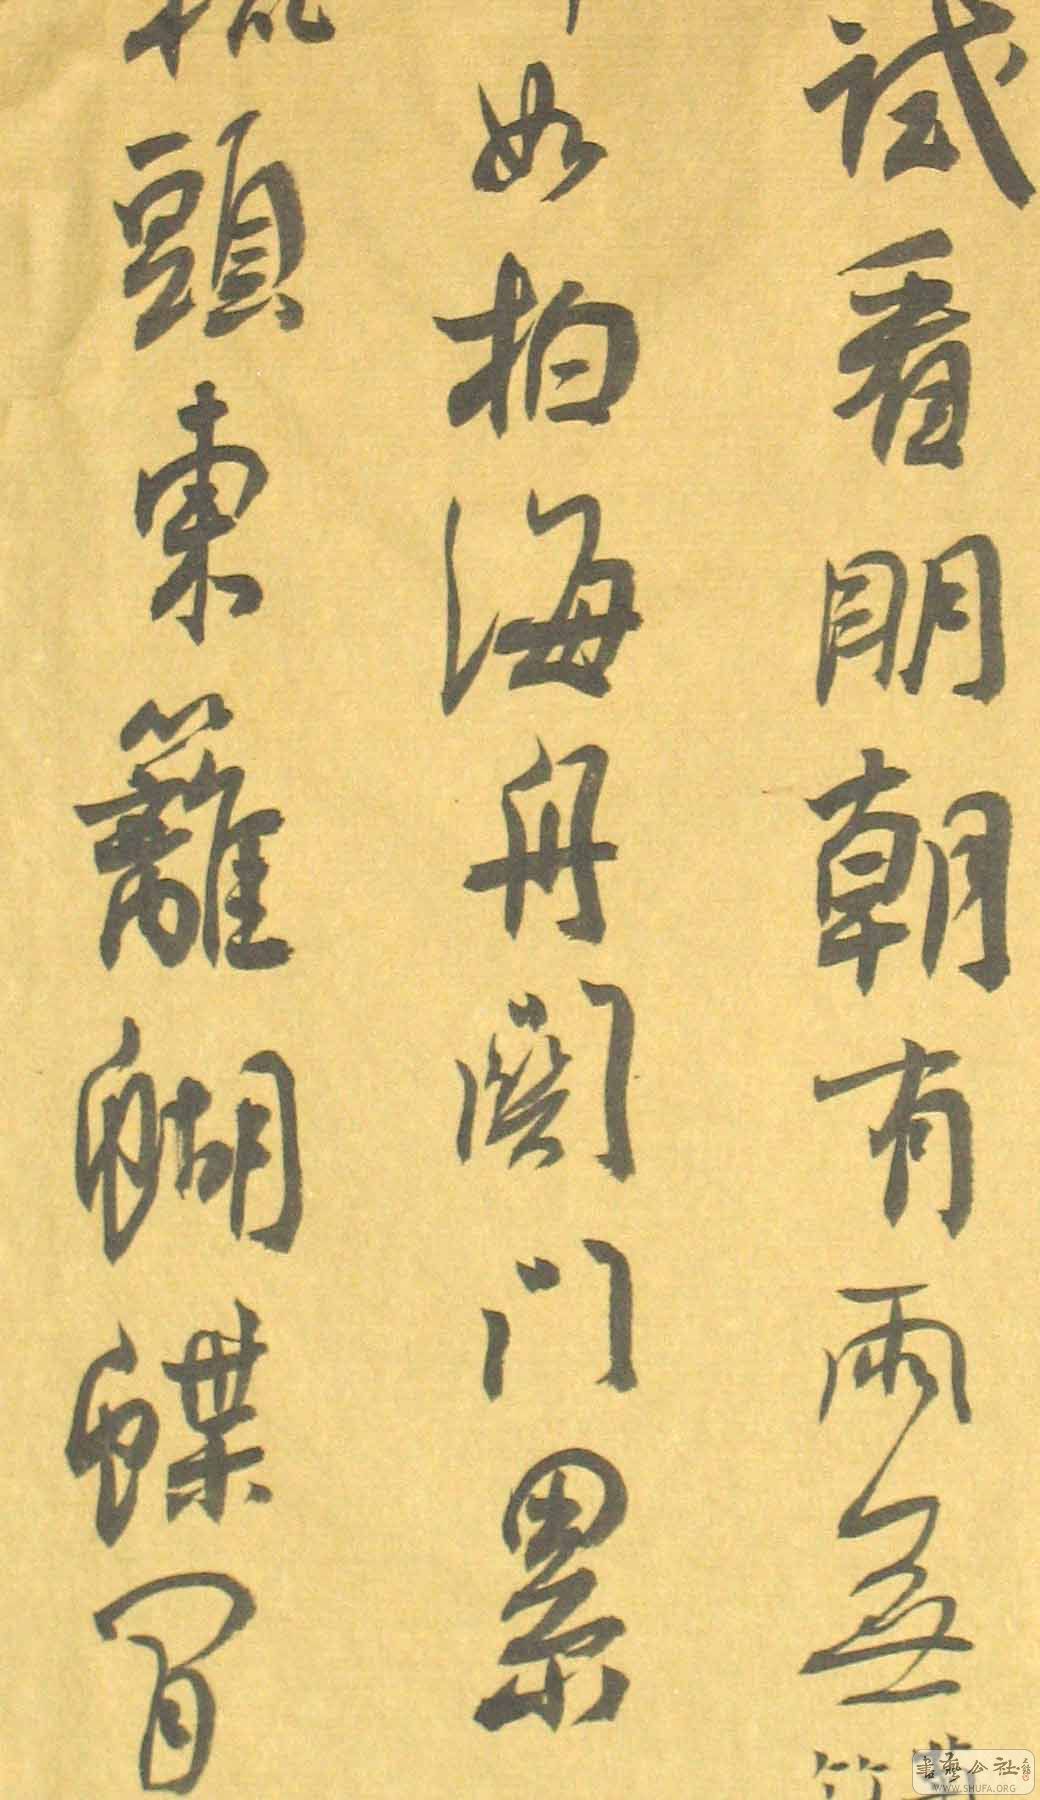 試看明朝有雨無
如拍海舟閑門累
頭東籬蝴蝶冒
書藝公社
WWW.SHUFA.ORG